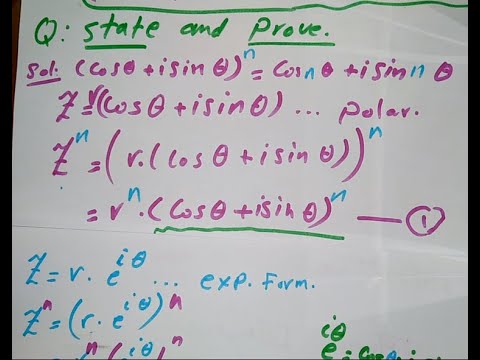 Q: state and Prove.
Sol: (cosθ+isinθ)^n = cos nθ + i sin nθ
Z=r(cosθ+isinθ) ... polar.
Z^n = (r.(cosθ+isinθ))^n
= r^n . (cosθ+isinθ)^n —— ①
Z=r. e^iθ ... exp. Form.
Z^n = (r. e^iθ)^n
e^iθ = cosθ